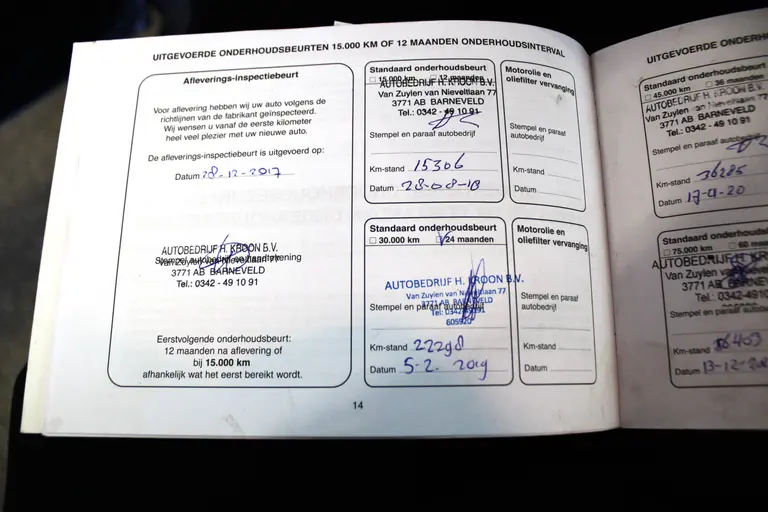 UITGEVOERDE ONDERHOUDSBEURTEN 15.000 KM OF 12 MAANDEN ONDERHOUDSINTERVAL
Afleverings-inspectiebeurt
Voor aflevering hebben wij uw auto volgens de
richtlijnen van de fabrikant geïnspecteerd.
Wij wensen u vanaf de eerste kilometer
heel veel plezier met uw nieuwe auto.
De afleverings-inspectiebeurt is uitgevoerd op:
Datum 28-12-2017
AUTOBEDRIJF H. KROON B.V.
Stempel autobedrijf en handtekening
Van Zuylen van Nieveltlaan 77
3771 AB BARNEVELD
Tel.: 0342 - 49 10 91
Eerstvolgende onderhoudsbeurt:
12 maanden na aflevering of
bij 15.000 km
afhankelijk wat het eerst bereikt wordt.
Standaard onderhoudsbeurt
15.000 km 12 maanden
AUTOBEDRIJF H. KROON B.V.
Van Zuylen van Nieveltlaan 77
3771 AB BARNEVELD
Tel.: 0342 - 49 10 91
Stempel en paraaf autobedrijf
Km-stand 15306
Datum 28-08-18
Motorolie en
oliefilter vervanging
Stempel en paraaf
autobedrijf
Km-stand
Datum
Standaard onderhoudsbeurt
30.000 km 24 maanden
AUTOBEDRIJF H. KROON B.V.
Van Zuylen van Nieveltlaan 77
3771 AB BARNEVELD
Stempel en paraaf autobedrijf
Tel: 0342-491091
605920
Km-stand 22298
Datum 5-2-2019
Motorolie en
oliefilter vervanging
Stempel en paraaf
autobedrijf
Km-stand
Datum
14
UITGEVOERDE ONDERH
Standaard onderhoudsbeurt
45.000 km 36 maanden
AUTOBEDRIJF H. KROON B.V.
Van Zuylen van Nieveltlaan 77
3771 AB BARNEVELD
Tel.: 0342 - 49 10 91
Stempel en paraaf
Km-stand 36285
Datum
Standaard onderhouds
75.000 km 60 maa
AUTOBEDRIJF H. KROON B.V.
Van Zuylen van Nieveltlaan 77
3771 AB BARNEVELD
Tel.: 0342 - 49 10 91
Stempel en
Km-stand
Datum 13-12-20